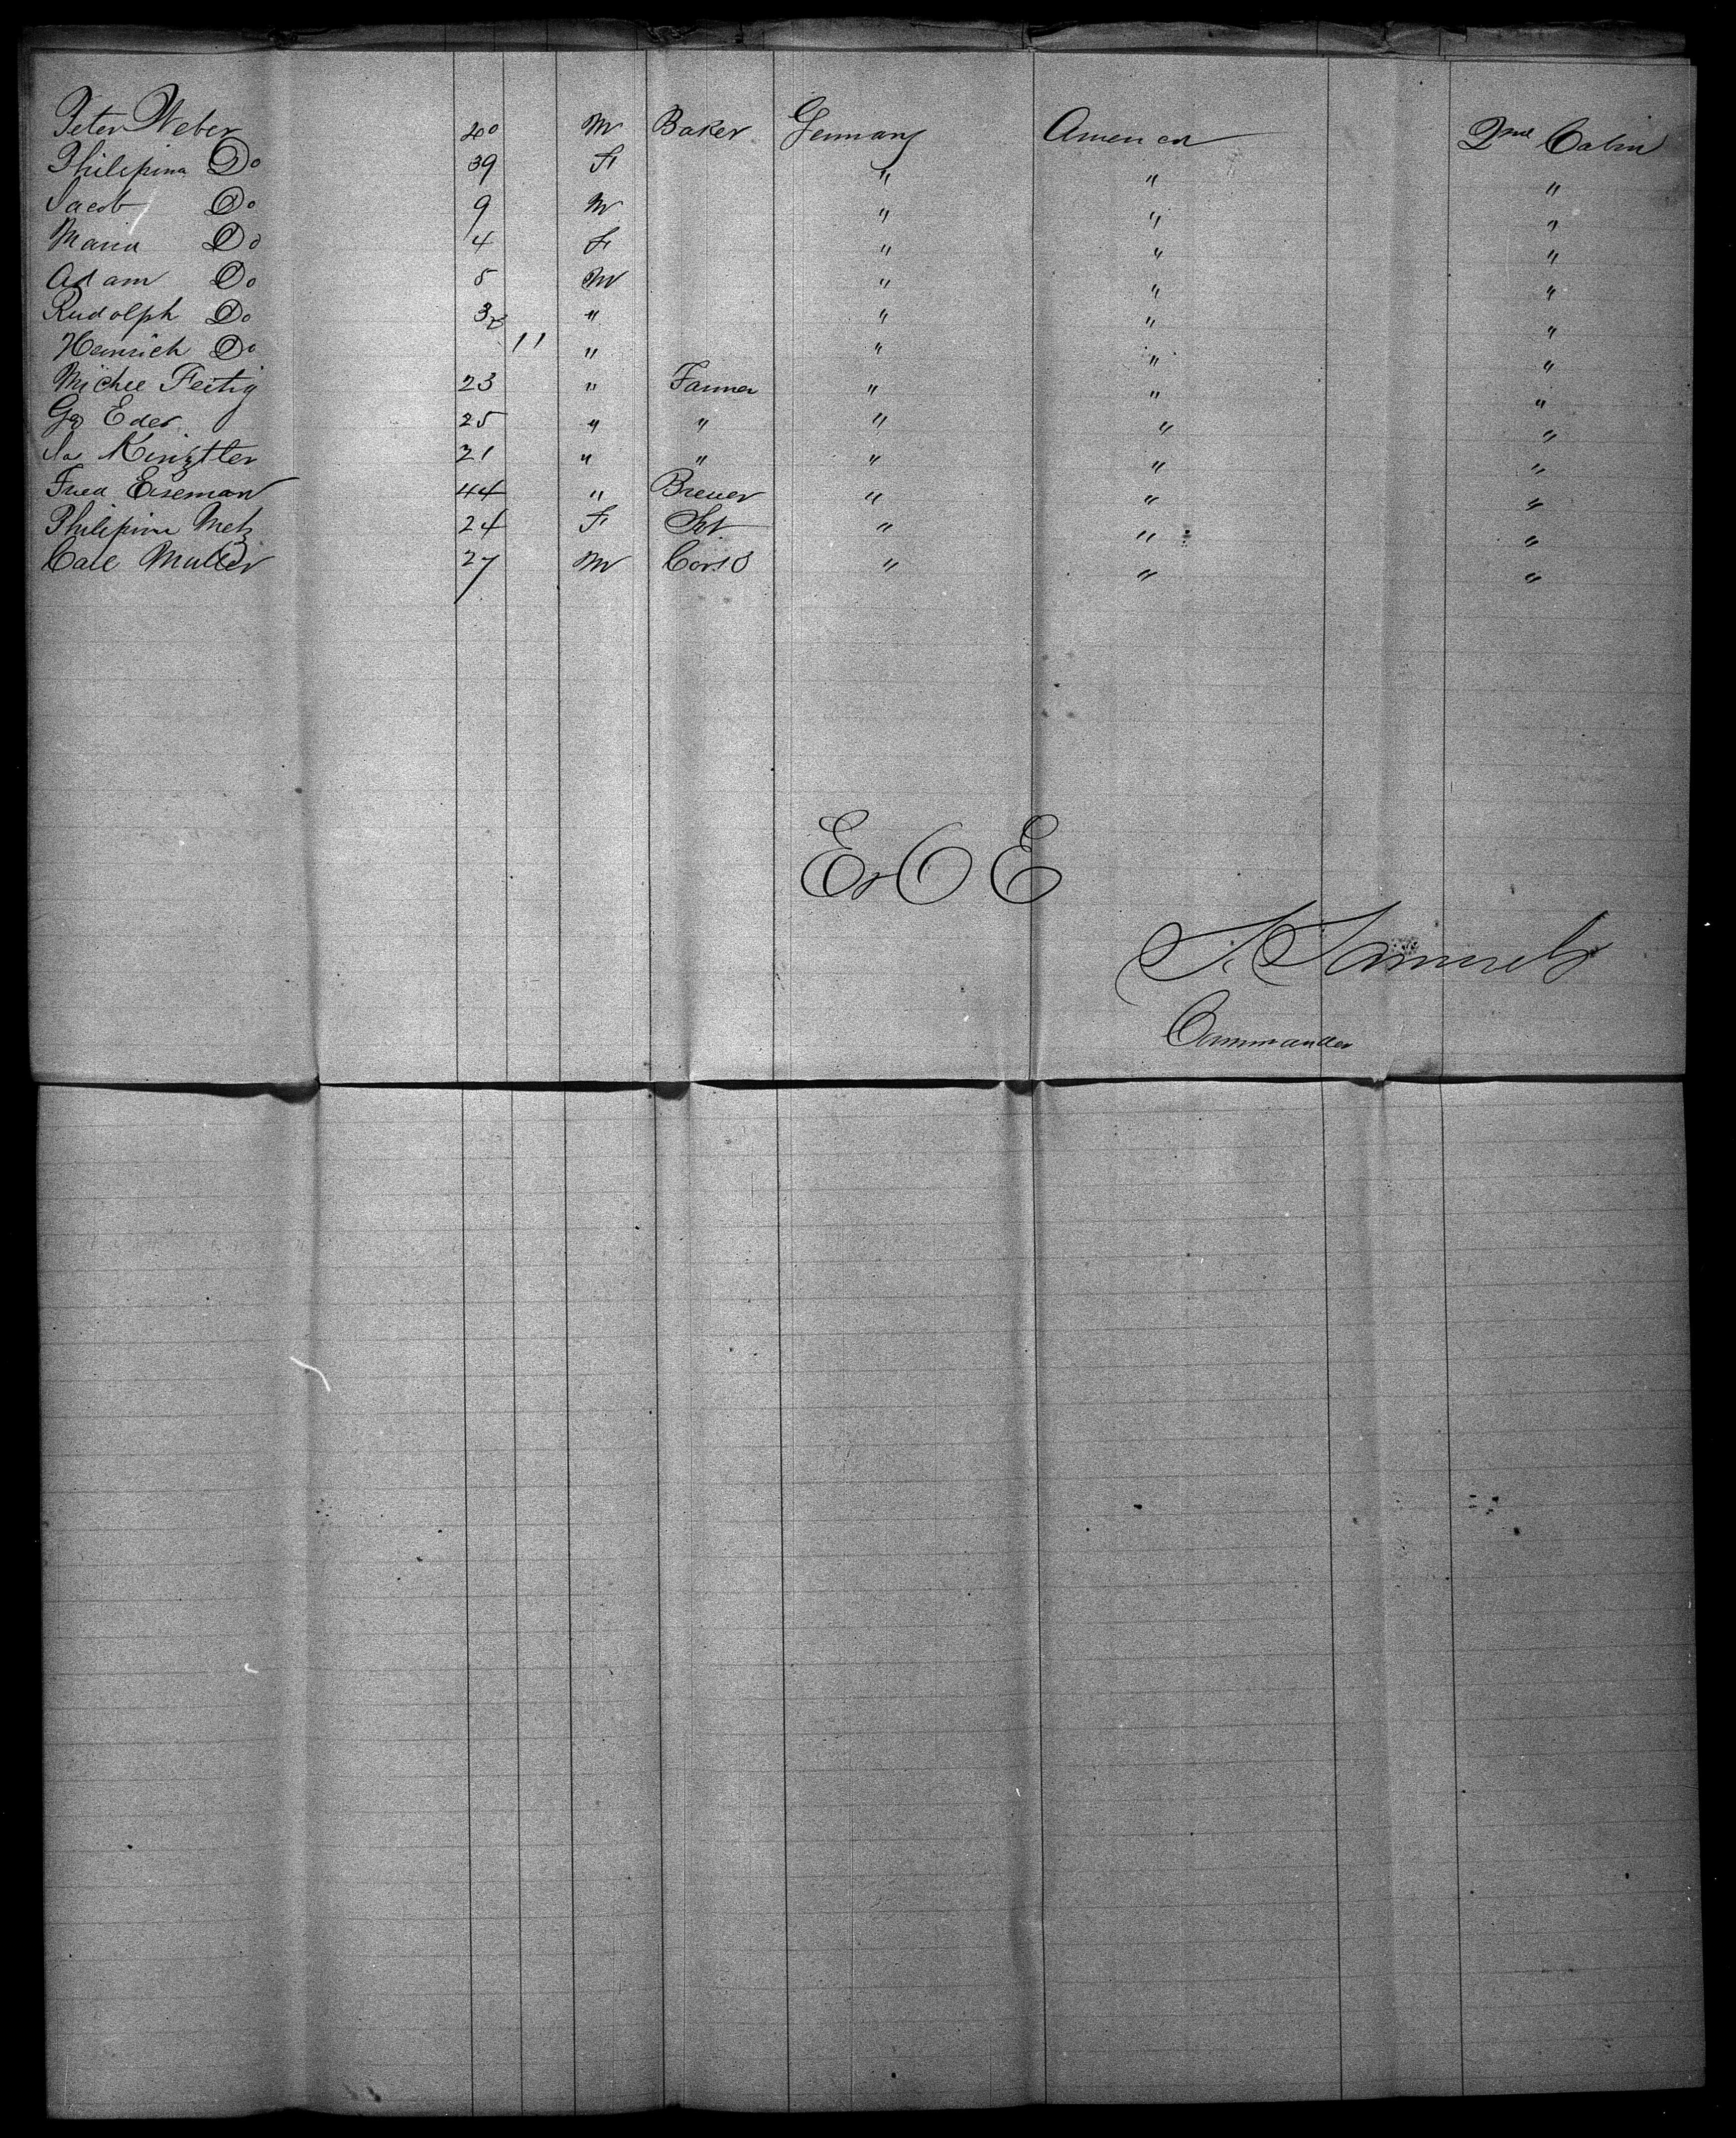 Peter Weber 40 M Baker Germany America 2nd Cabin
Philipina Do 39 F " " "
Jacob Do 9 M " " "
Maria Do 4 F " " "
Adam Do 5 M " " "
Rudolph Do 3 " " " "
Heinrich Do 11 " " " "
Michel Fertig 23 " Farmer " " "
Go Eder 25 " " " " "
Jo Kinztler 21 " " " " "
Fred Eiseman 44 " Brewer " " "
Philipina Metz 24 F " " "
Carl Muller 27 M " " "
E & O E
S. Samuels
Commander